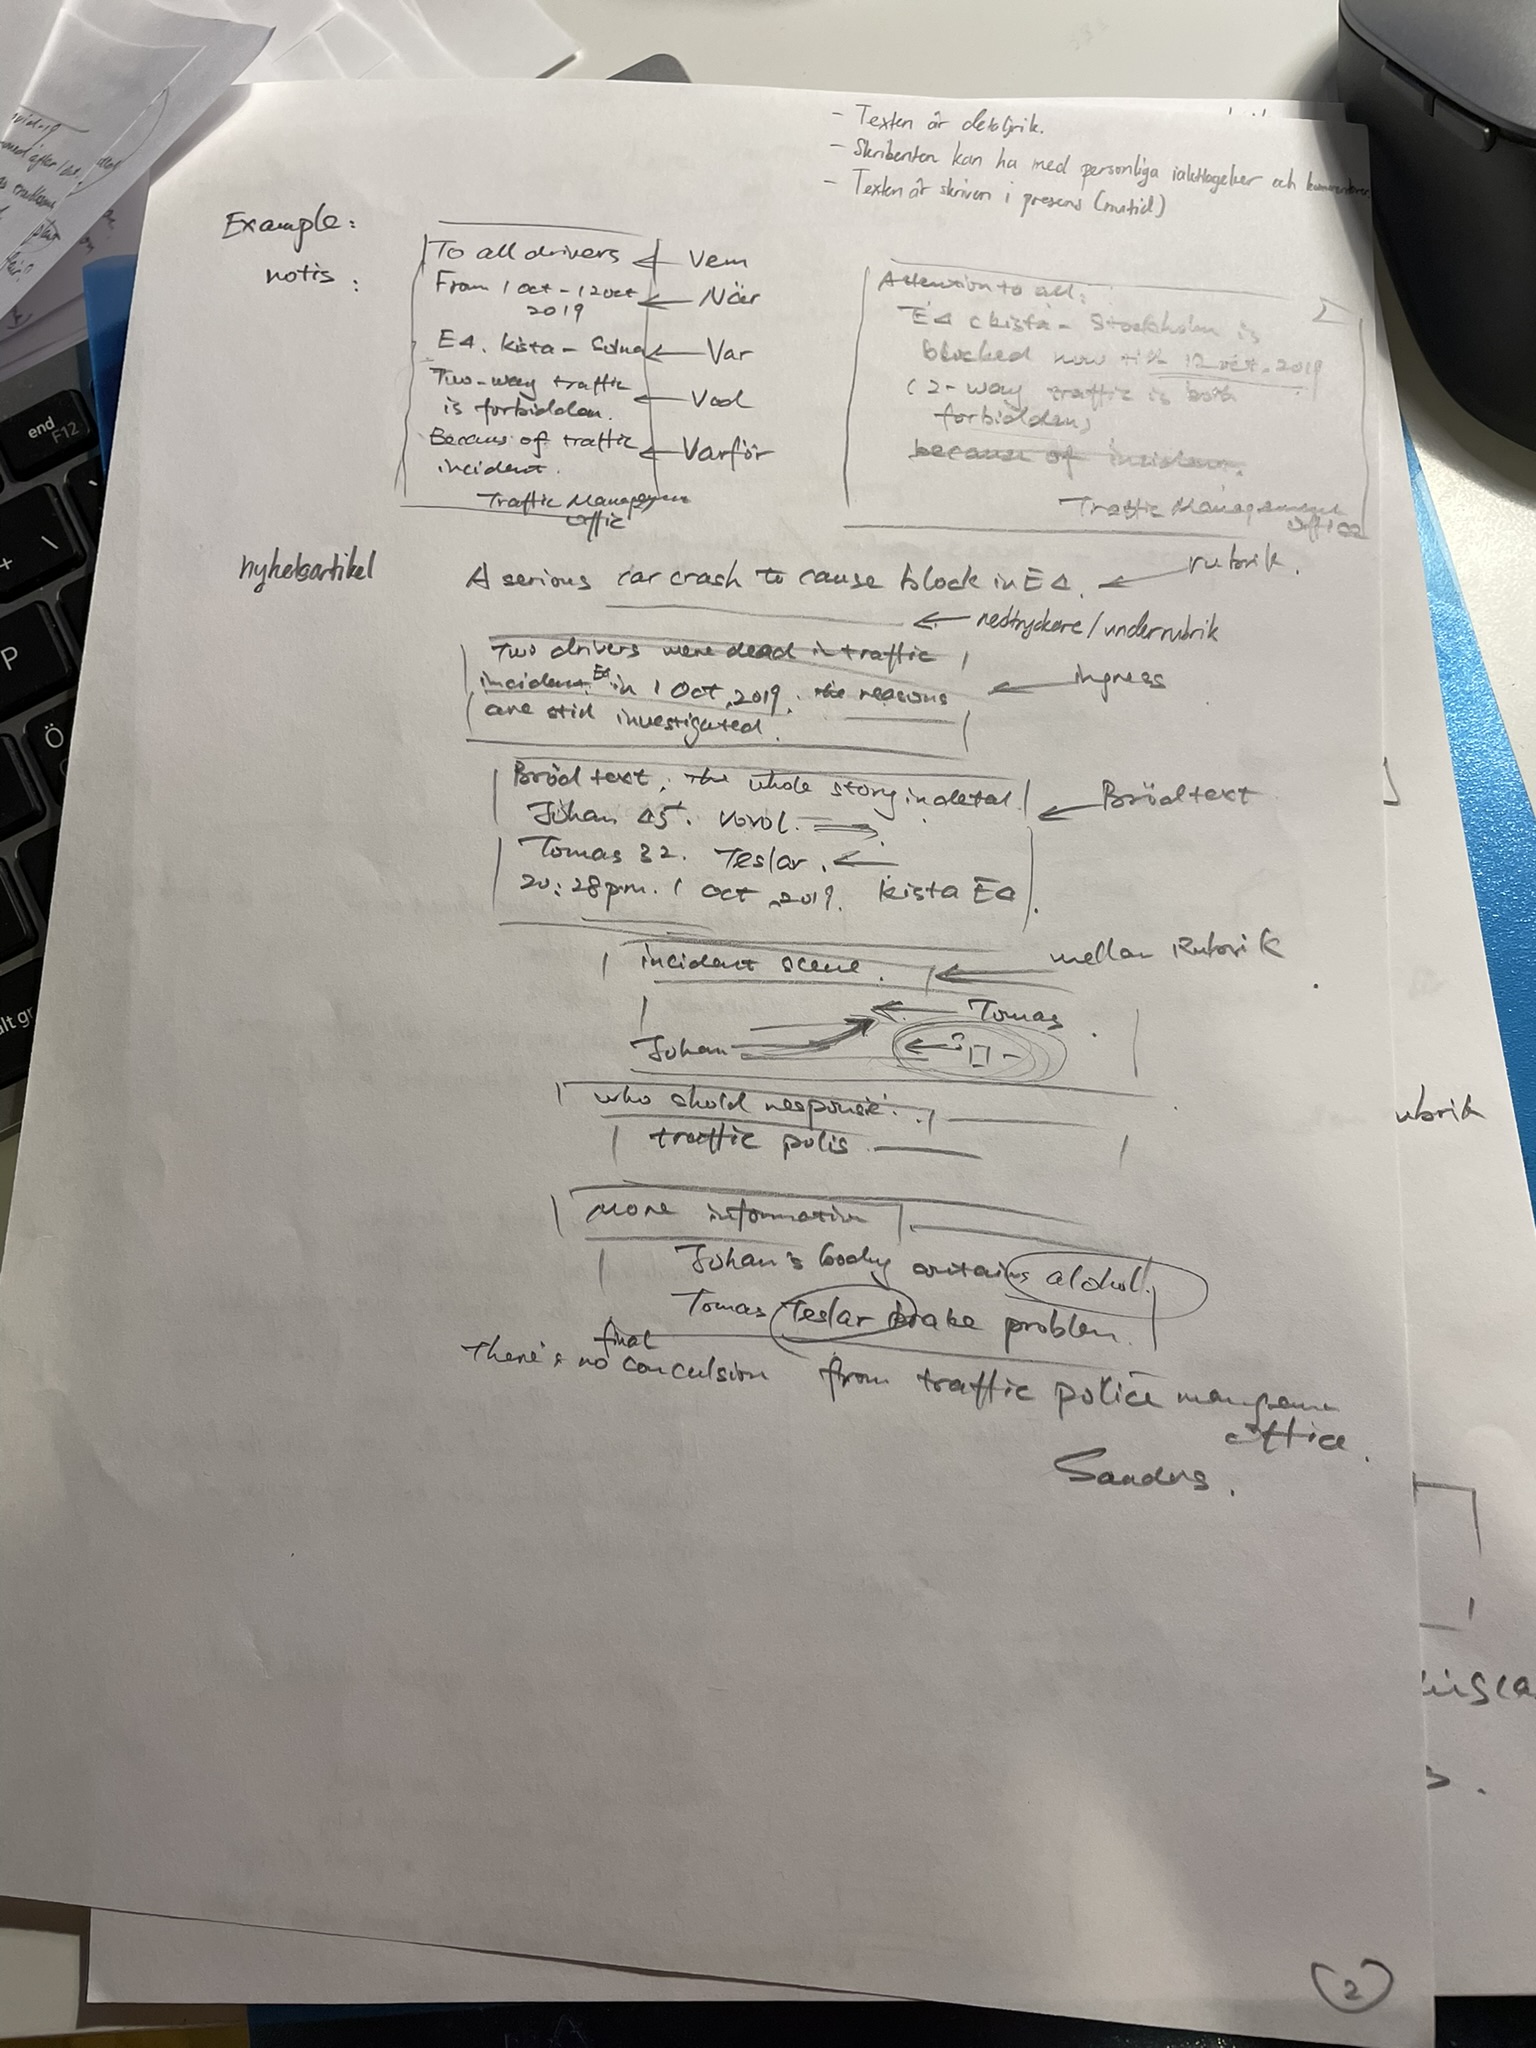 - Texten är detaljrik.
- Skribenten kan ha med personliga iakttagelser och kommentarer
- Texten är skriven i presens (nutid)
Example:
notis:
To all drivers ← Vem
From 1 Oct - 12 Oct ← När
2019
E4. Kista - Solna ← Var
Two-way traffic ← Vad
is forbidden.
Becaus of traffic ← Varför
incident.
Traffic Management
offic
Attention to all:
E4 (kista - Stockholm is
blocked now till 12 oct. 2019
(2-way traffic is both
forbidden)
because of incident.
Traffic Management
office
nyhetsartikel
A serious car crash to cause block in E4. ← rubrik.
← nedtryckare/underrubrik
Two drivers were dead in traffic
incident E4 in 1 Oct, 2019. the reasons ← ingress
are still investigated.
Brödtext: the whole story in detal. ← Brödtext
Johan 45. Vovol.
Tomas 32. Teslar. ←
20:28pm. 1 Oct, 2019. Kista E4.
incident scene. ← mellan Rubrik
← Tomas
Johan
who shold response.
traffic polis
more information
Johan's body contains alchol.
Tomas Teslar brake problem.
final
There's no conculsion from traffic police
office.
Sanders.
ubrik
2
end
F12
+
\
P
Ö
alt gr